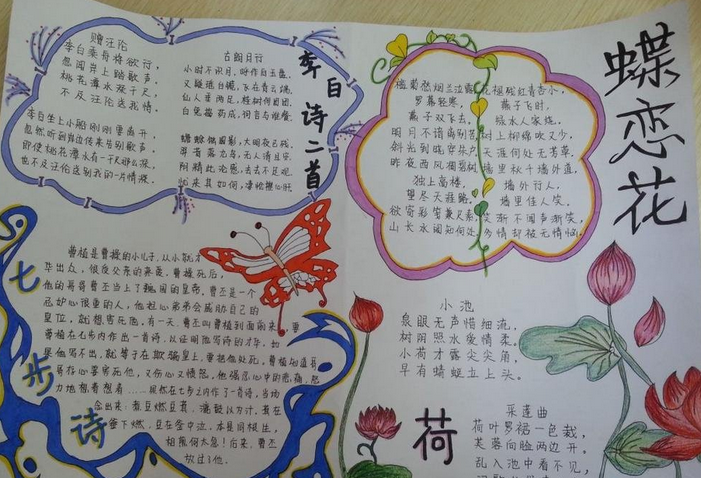 赠汪伦
李白乘舟将欲行,
忽闻岸上踏歌声。
桃花潭水深千尺,
不及汪伦送我情。
李白坐上小船刚刚要离开,
忽然听到岸边传来告别歌声。
即使桃花潭水有一千尺那么深,
也不及汪伦送别我的一片情深。
古朗月行
小时不识月,呼作白玉盘。
又疑瑶台镜,飞在青云端。
仙人垂两足,桂树何团团。
白兔捣药成,问言与谁餐。
蟾蜍蚀圆影,大明夜已残。
羿昔落九乌,天人清且安。
阴精此沦惑,去去不足观。
忧来其如何,凄怆摧心肝。
李白诗二首
蝶恋花
槛菊愁烟兰泣露
罗幕轻寒,
燕子双飞去。
明月不谙离别苦
斜光到晓穿朱户
昨夜西风凋碧树
独上高楼,
望尽天涯路。
欲寄彩笺兼尺素
山长水阔知何处
花褪残红青杏小,
燕子飞时,
绿水人家绕。
枝上柳绵吹又少,
天涯何处无芳草
墙里秋千墙外道,
墙外行人,
墙里佳人笑。
笑渐不闻声渐
多情却被无情恼
七步诗
曹植是曹操的小儿子,从小就才
华出众,很受父亲的
曹操死后,
他的哥哥曹丕当上了魏国的皇帝。曹丕是一个
忌妒心很重的人,他担心弟弟会威胁自己的
皇位,就想害死他。有一天,曹丕叫曹植到面前来,要
曹植在七步内作出一首诗,以证明他写诗的才华。如
果他写不出,就等于在欺骗皇上,要把他处死。曹植知道哥
哥存心要害死他,又伤心又愤怒。他强忍心中的悲痛,努
力地想着想着……果然在七步之内作了一首诗,当场
念出来:煮豆燃豆萁,漉豉以为汁。萁在
釜下燃,豆在釜中泣。本是同根生,
相煎何太急!后来,曹丕
放过了他。
小池
泉眼无声惜细流,
树阴照水爱晴柔。
小荷才露尖尖角,
早有蜻蜓立上头。
荷
采莲曲
荷叶罗裙一色裁,
芙蓉向脸两边开。
乱入池中看不见,